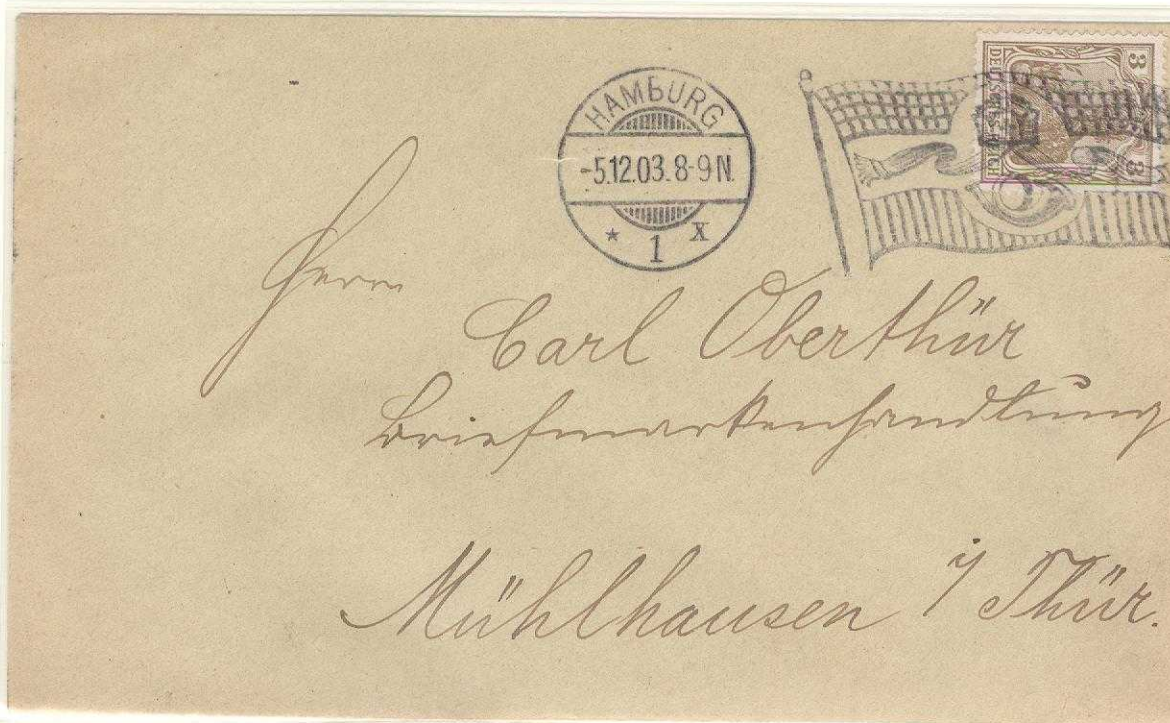 HAMBURG
-5.12.03.8-9N.
* 1 x
3
DEUTSCHES REICH
3
Herrn
Carl Oberthür
Briefmarkenhandlung
Mühlhausen i/Thür.